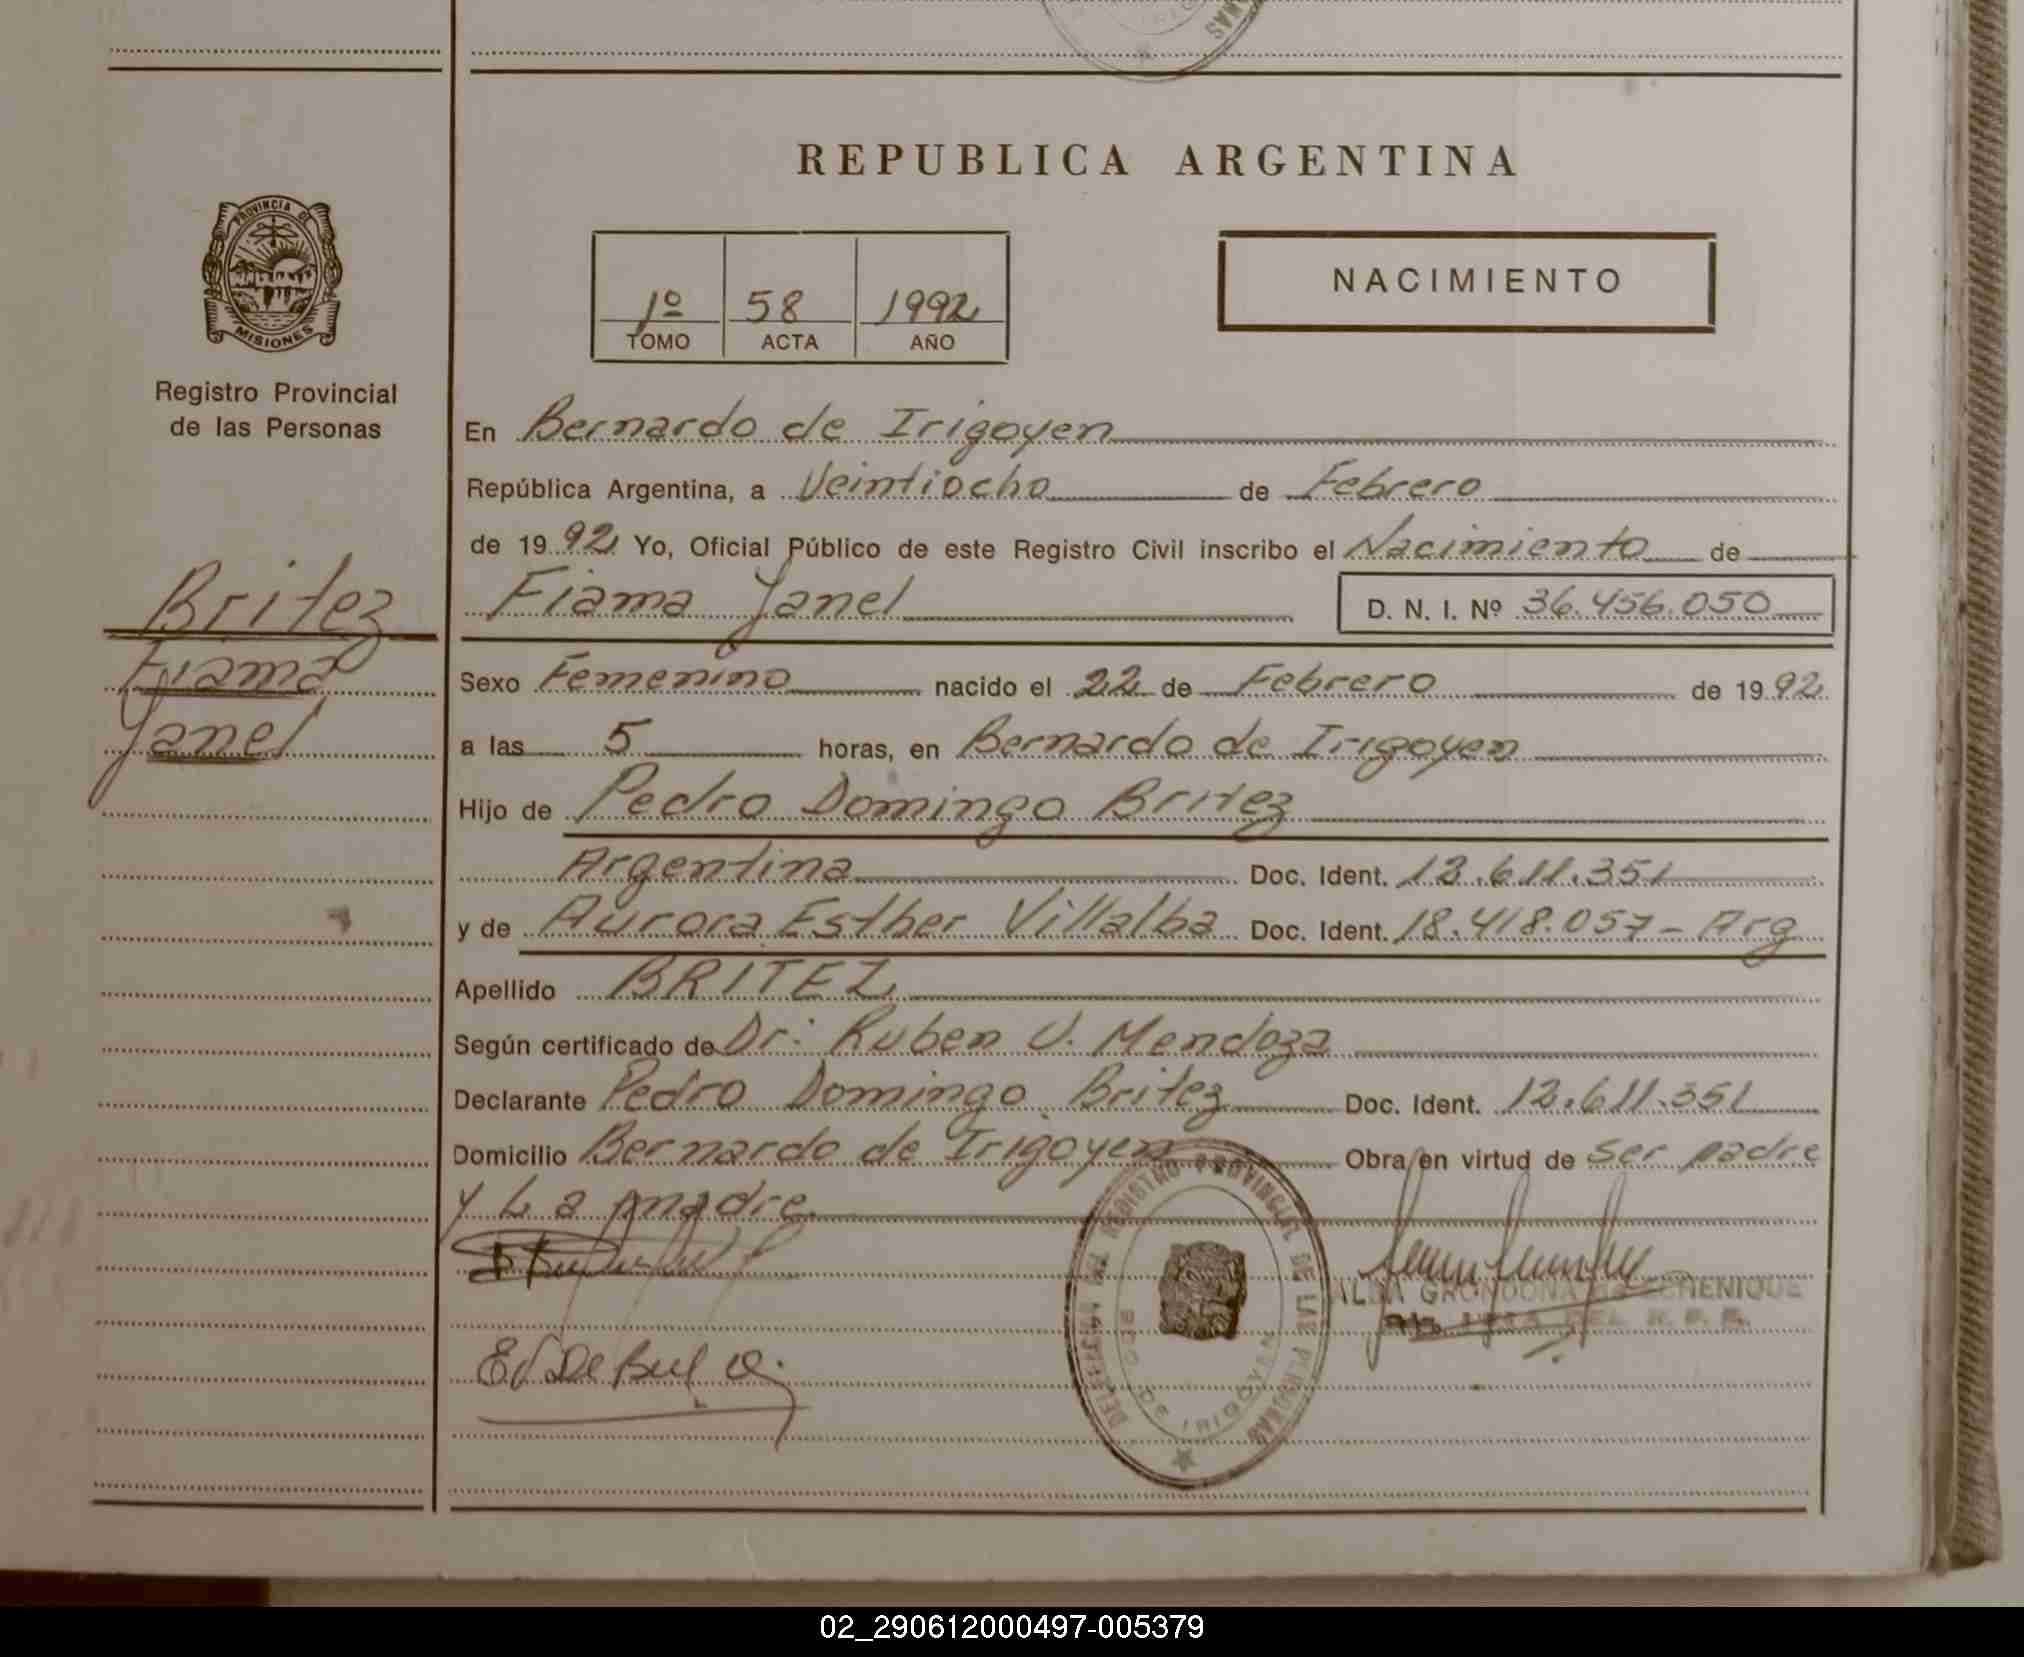 REPUBLICA ARGENTINA
PROVINCIA DE
MISIONES
Registro Provincial
de las Personas
NACIMIENTO
1º 58 1992
TOMO ACTA AÑO
En Bernardo de Irigoyen
República Argentina, a Veintiocho de Febrero
de 1992 Yo, Oficial Público de este Registro Civil inscribo el Nacimiento de
Fiama Yanel D. N. I. Nº 36.456.050
Britez
Fiama
Yanel
Sexo Femenino nacido el 22 de Febrero de 1992
a las 5 horas, en Bernardo de Irigoyen
Hijo de Pedro Domingo Britez
Argentina Doc. Ident. 12.611.351
y de Aurora Esther Villalba Doc. Ident. 18.418.057 - Arg
Apellido BRITEZ
Según certificado de Dr: Ruben V. Mendoza
Declarante Pedro Domingo Britez Doc. Ident. 12.611.351
Domicilio Bernardo de Irigoyen Obra en virtud de ser padre
y La madre.
REGISTRO PROVINCIAL DE LAS PERSONAS
DE IRIGOYEN
ALBA GRONDONA de ECHENIQUE
02_290612000497-005379